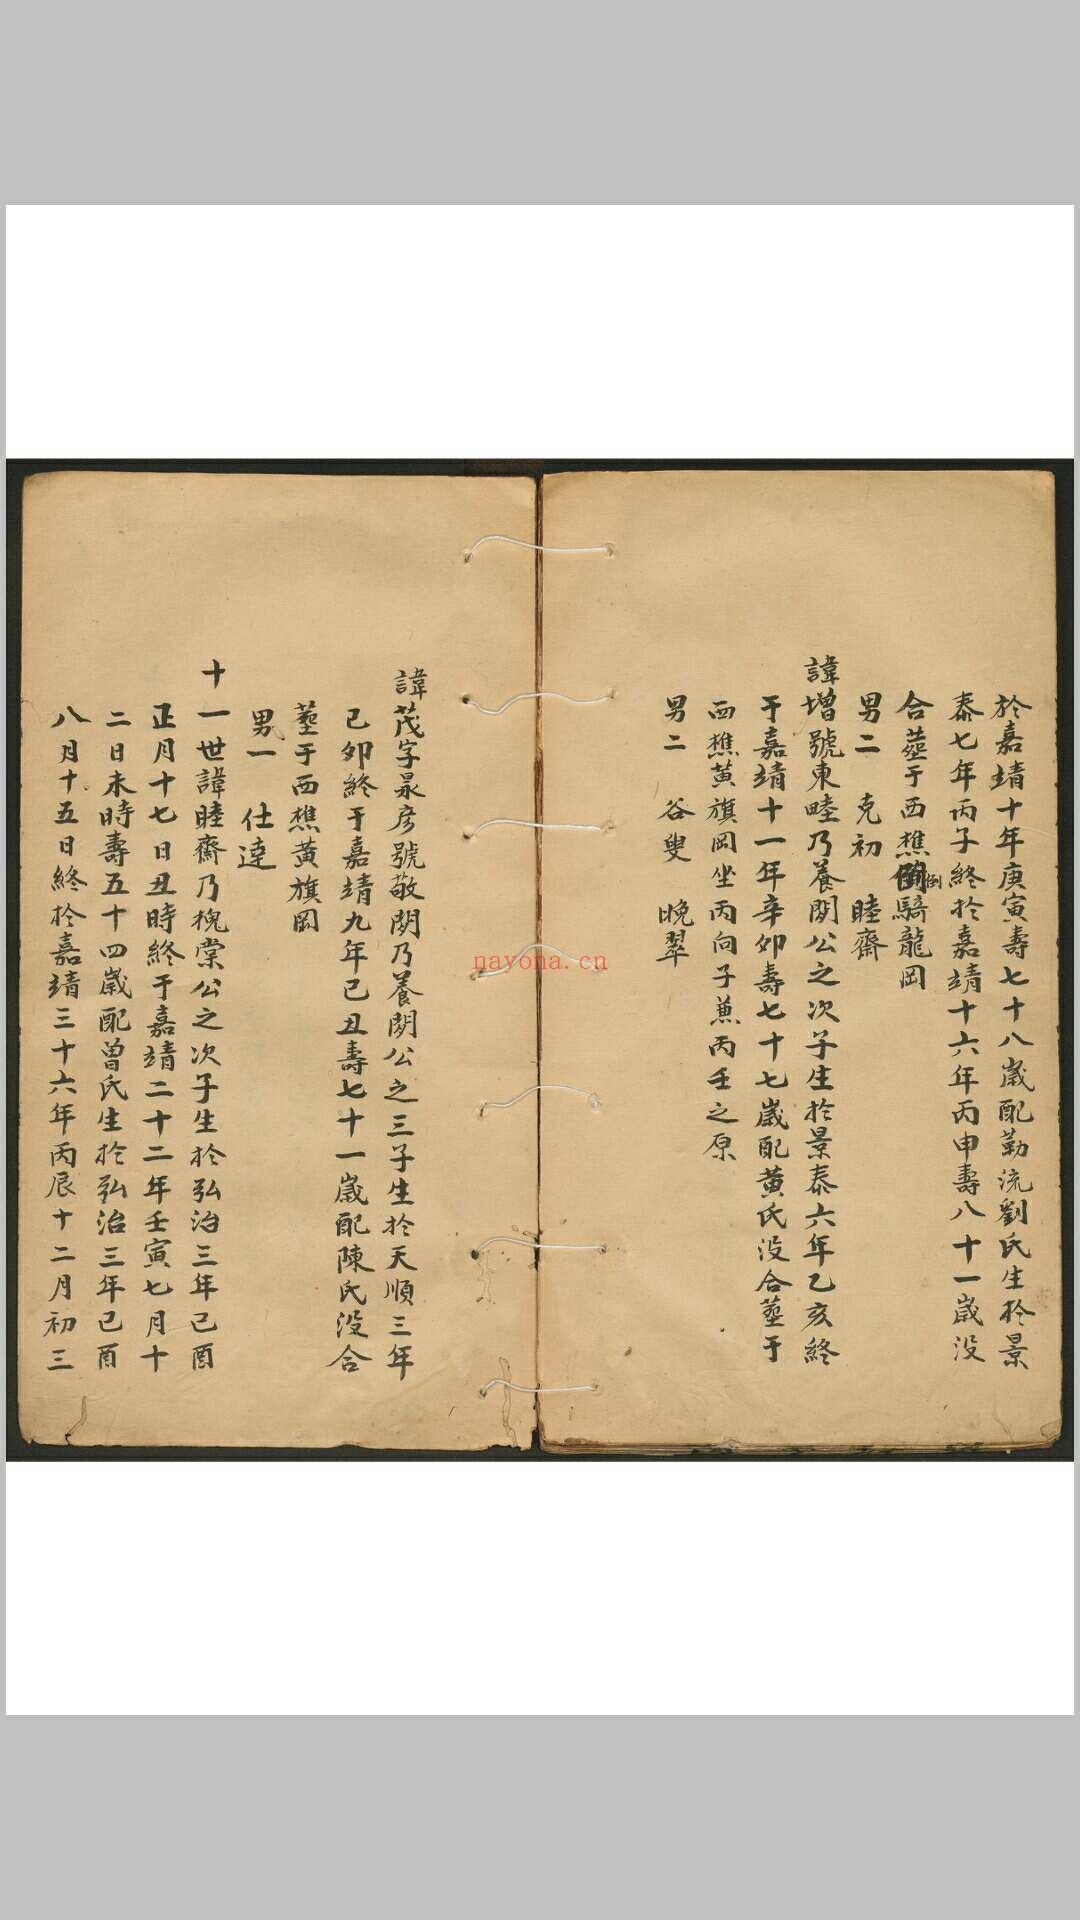 於嘉靖十年庚寅壽七十八歲配勒流劉氏生於景
泰七年丙子終於嘉靖十六年丙申壽八十一歲没
合塟于西樵倒騎龍岡
男二 克初 睦齋
諱增號東睦乃養閑公之次子生於景泰六年乙亥終
于嘉靖十一年辛卯壽七十七歲配黄氏没合塟于
西樵黄旗岡坐丙向子兼丙壬之原
男二 谷叟 晚翠
諱茂字景彦號敬閑乃養閑公之三子生於天順三年
己卯終于嘉靖九年己丑壽七十一歲配陳氏没合
塟于西樵黃旗岡
男一 仕達
十一世諱睦齋乃槐棠公之次子生於弘治三年己酉
正月十七日丑時終于嘉靖二十二年壬寅七月十
二日未時壽五十四歲配曾氏生於弘治三年己酉
八月十五日終於嘉靖三十六年丙辰十二月初三
nayona.cn